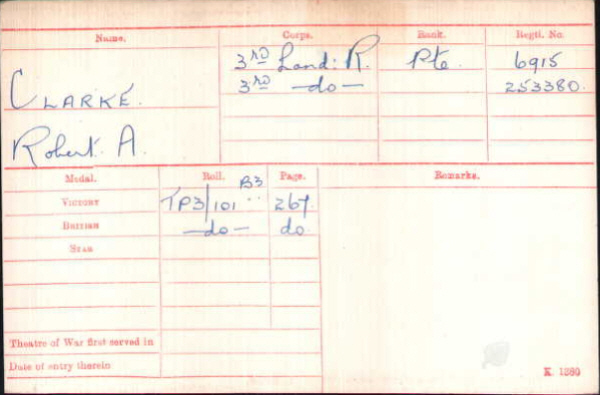 Name. Corps. Rank. Regtl. No.
3RD Lond: R. Pte. 6915
3RD —do— 253380.
CLARKE.
Robert. A.
Medal. Roll. Page. Remarks.
VICTORY TP3/101 B3 267
BRITISH —do— do.
STAR
Theatre of War first served in
Date of entry therein
K 1380